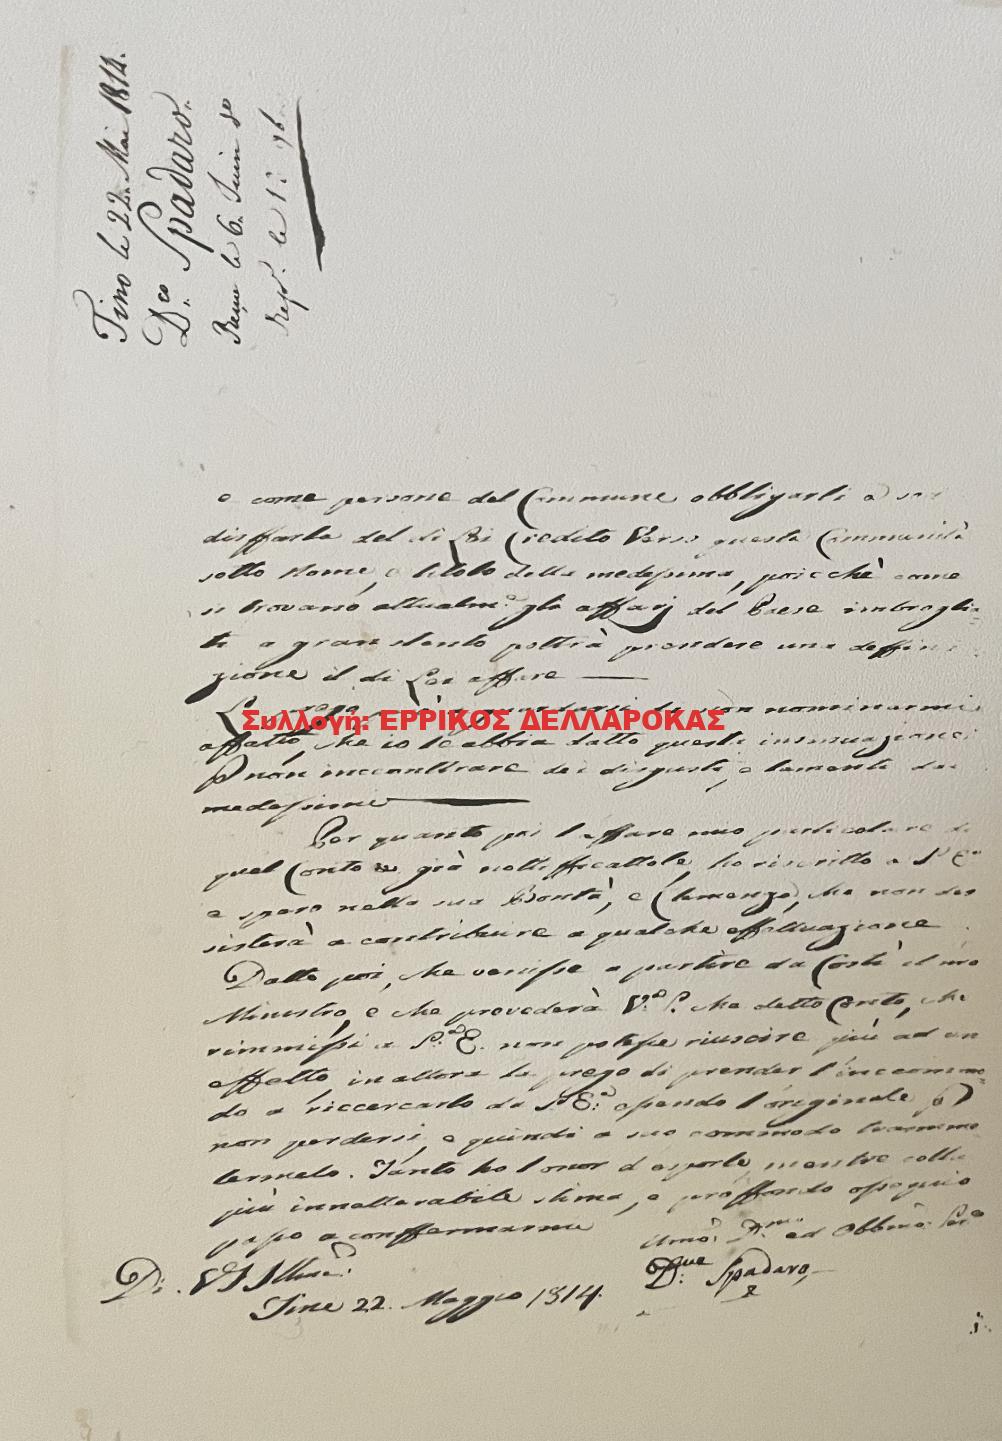 Tino le 22. Mai 1814.
D.co Spadaro.
le 6. Juin do
Rep. le
e come persone del Commune obbligarli a
disfarla del di Lei Credito Verso questa Communità
sotto Nome, o titolo della medesima, poicchè come
si trovano attualm.e gli affarj del Paese imbroglia=
ti a gran stento pottrà prendere una deffini
zione il di Lei affare
La prego di non nominarmi
affatto, che io le abbia datto questa insinuazione
non inccontrare dei disgusti, e lamenti dai
medesimi
Per quanto poi l'affare mio particolare di
quel Conto già nottifficattole, ho riscritto a S. E.
e spero nella sua Bontà, e Clemenza, che non des
sisterà a contribuire a qualche effettuazione
Datto poi, che venisse a partire da Costì il mio
Ministro, e che provederà V. S. che detto Conto, che
rimmissi a S. E. non potesse riuscire più ad un
effetto, in allora La prego di prender l'inccommo=
do a riccercarlo da S. E. essendo l'originale
non perdersi, e quindi a suo commodo trasmme
termelo. Tanto ho l'onor d'esporle, mentre colla
più innalterabile stima, e proffondo ossequio
passo a conffermarmi
Di. V S Illma.
Tine 22. Maggio 1814.
ed Obbmo.
Spadaro
Συλλογή: ΕΡΡΙΚΟΣ ΔΕΛΛΑΡΟΚΑΣ